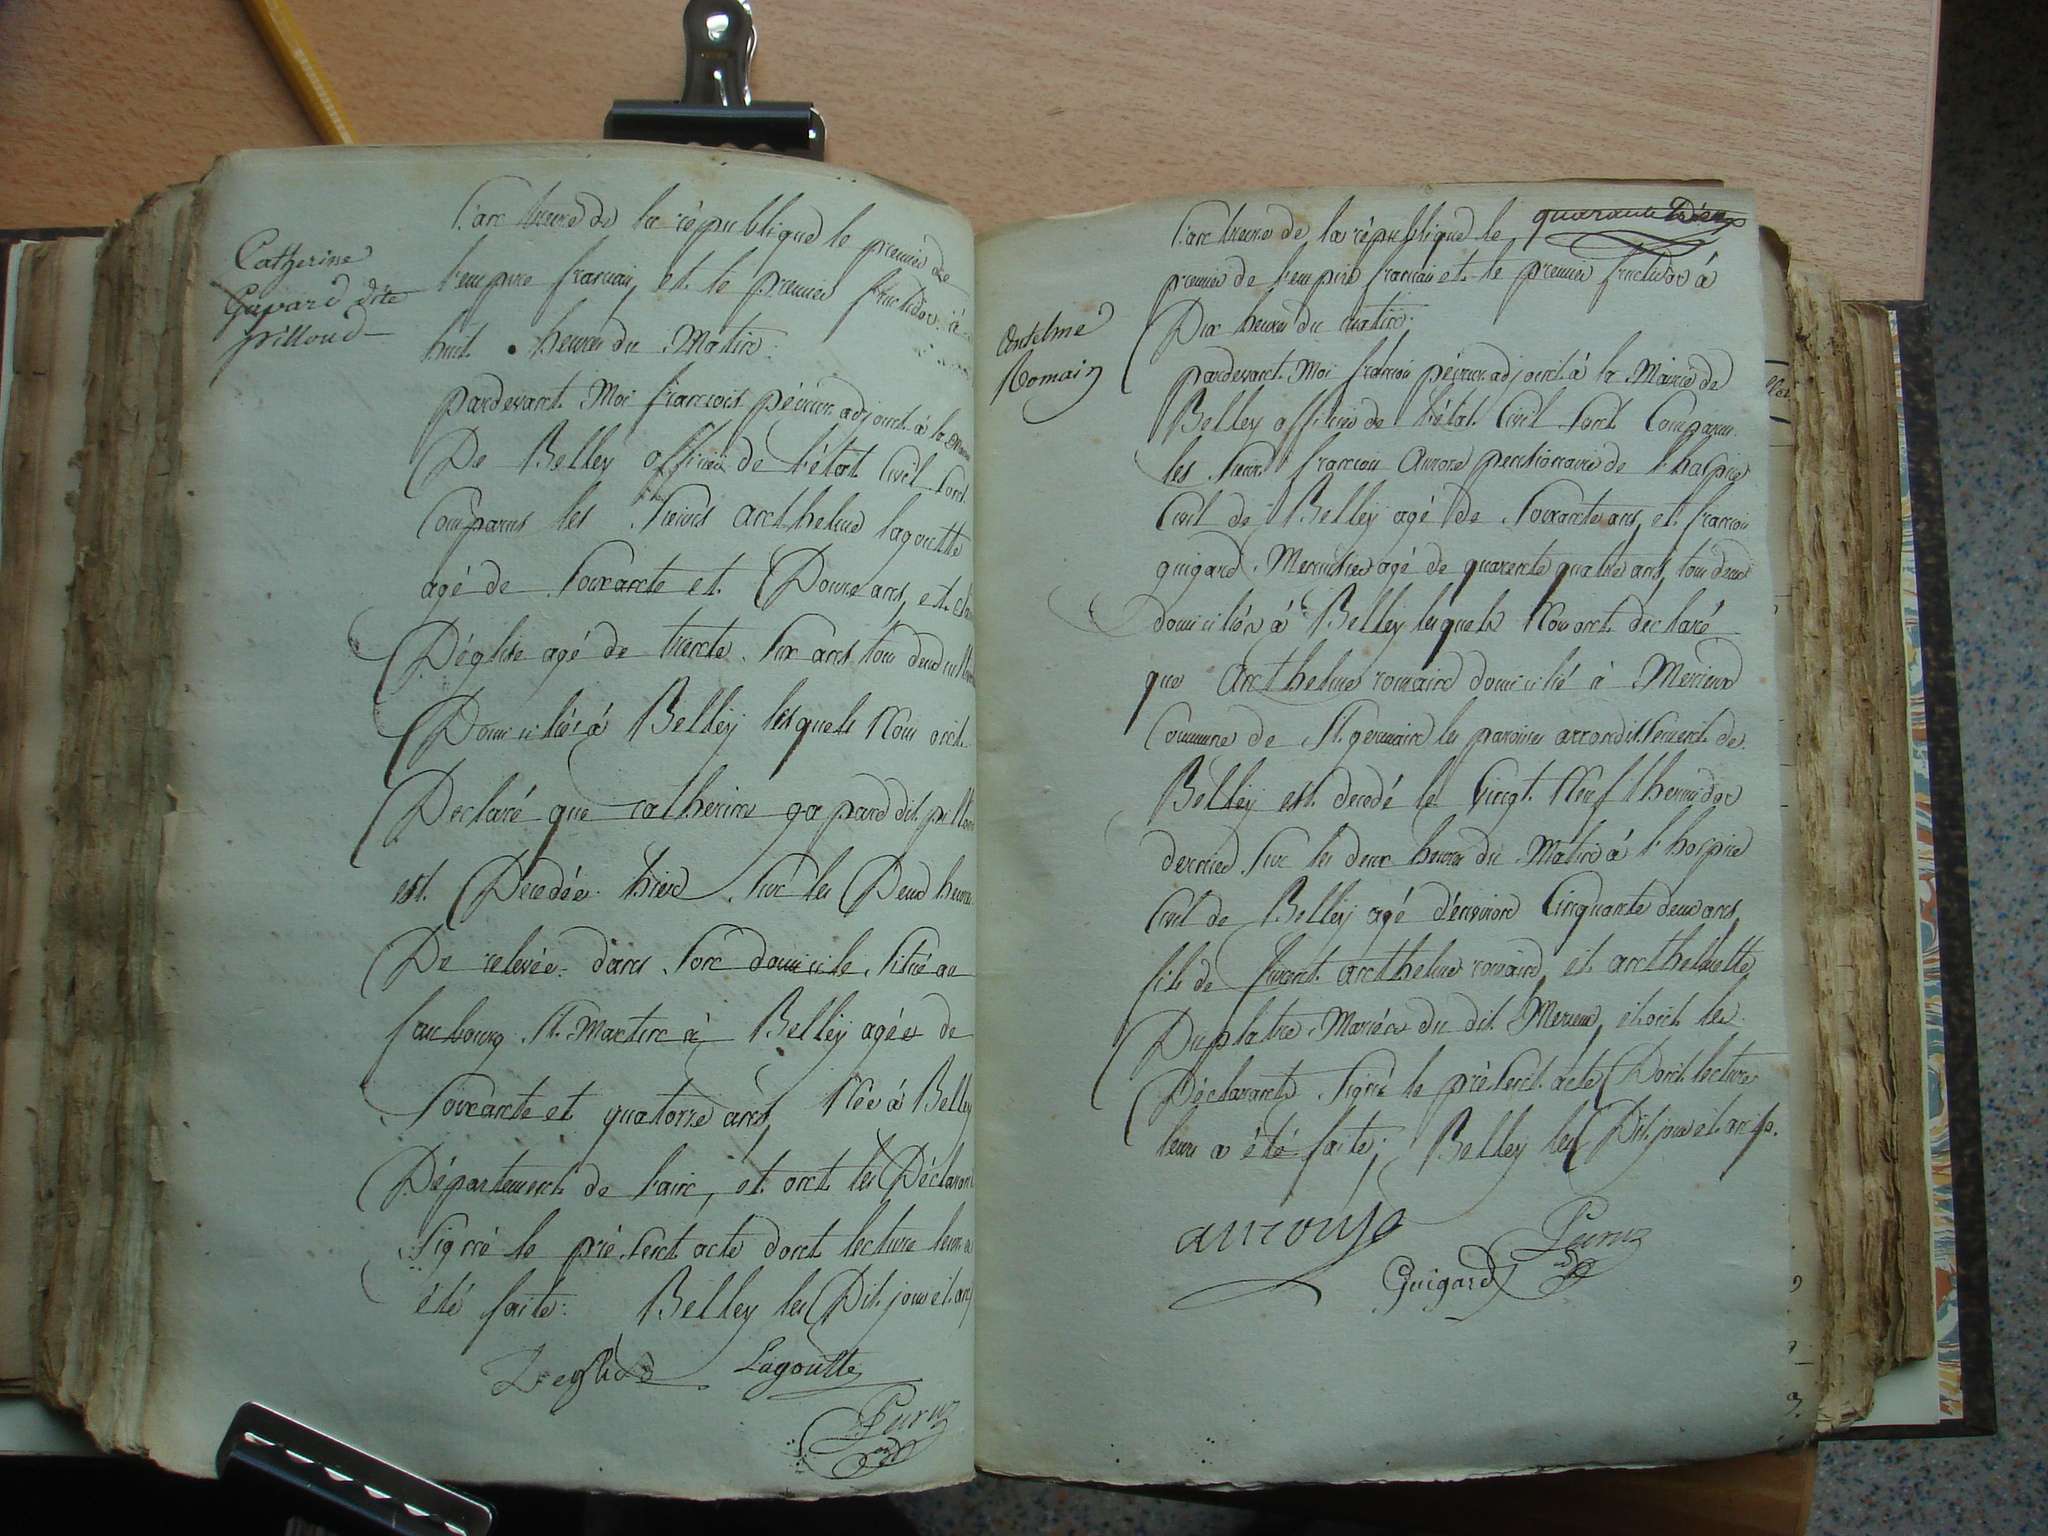 Catherine
Gapard dite
pilloud
L'an treize de la république le premier de
l'empire francais, et le premier fructidor à
huit heures du Matin
pardevant Moi francois péyrus adjoint à la
De Belley officier de l'état Civil sont
Comparus les sieurs anthelme lagoutte
agé de soixante et Douze ans, et
Déglise agé de trente six ans tous deux
Domiciliés à Belley lesquels Nous ont
Declaré que catherine gapard dit
est Decedée hier sur les Deux heures
De relevée dans son domicile situé au
faubourg St. Martin à Belley agée de
soixante et quatorze ans, Née à Belley
Département de l'ain, et ont les Déclarants
signé le présent acte dont lecture leur a
été faite. Belley les Dit jour et an
Deglise Lagoutte
Anthelme
Romain
L'an treize de la république le
premier de l'empire francais et le premier fructidor à
Dix heures du matin.
pardevant Moi francois péyrus adjoint à la Mairie de
Belley officier de l'état Civil sont Comparus
les sieurs francois pensionnaire de l'hospice
Civil de Belley agé de soixante ans, et francois
guigard Menuisier agé de quarente quatre ans, tous deux
domiciliés à Belley lesquels Nous ont declaré
que Anthelme romain domicilié à Merieux
Commune de St. germain les paroisses arrondissement de
Belley est decedé le Vingt Neuf thermidor
dernier sur les deux heures du Matin à l'hospice
Civil de Belley agé d'environ Cinquante deux ans,
fils de Anthelme romain, et anthelmette
Duplatre Mariés du dit Merieux, et ont les
Déclarants signé le présent acte Dont lecture
leurs a été faite, Belley les Dit jour et an
Guigard